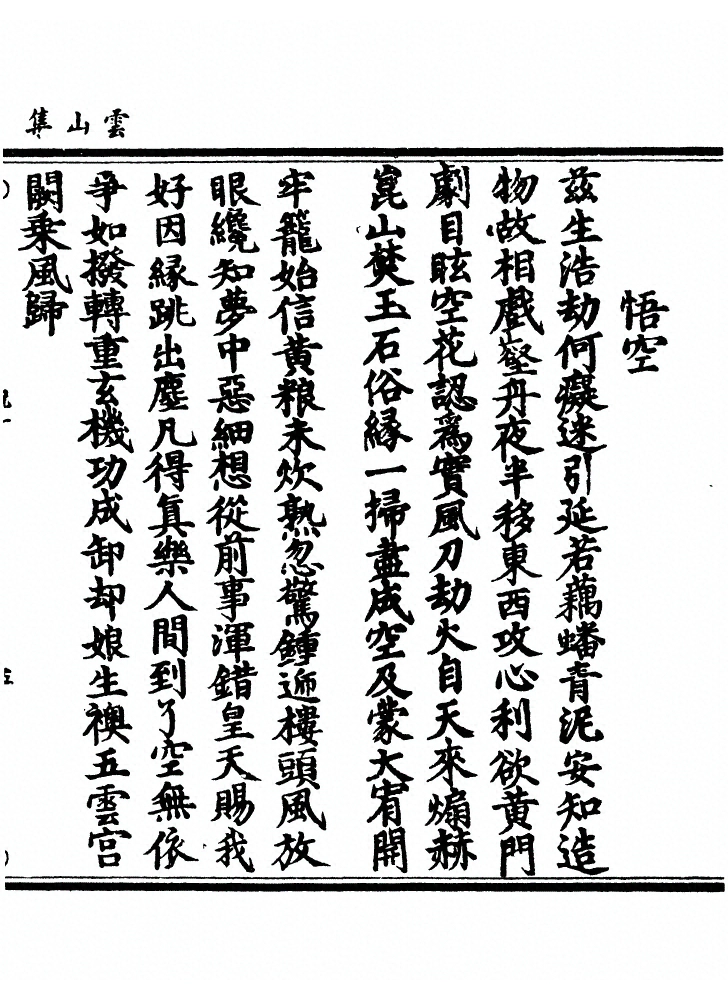 雲山集
悟空
茲生浩劫何癡迷引延若藕蟠青泥安知造
物故相戲壑舟夜半移東西攻心利欲黃門
劇目眩空花認爲實風刀劫火自天來煽赫
崑山焚玉石俗緣一掃盡成空及蒙大宥開
牢籠始信黃粮未炊熟忽驚鍾遞樓頭風放
眼纔知夢中惡細想從前事渾錯皇天賜我
好因緣跳出塵凡得眞樂人間到了空無依
爭如撥轉重玄機功成卸却娘生襖五雲宮
闕乗風歸